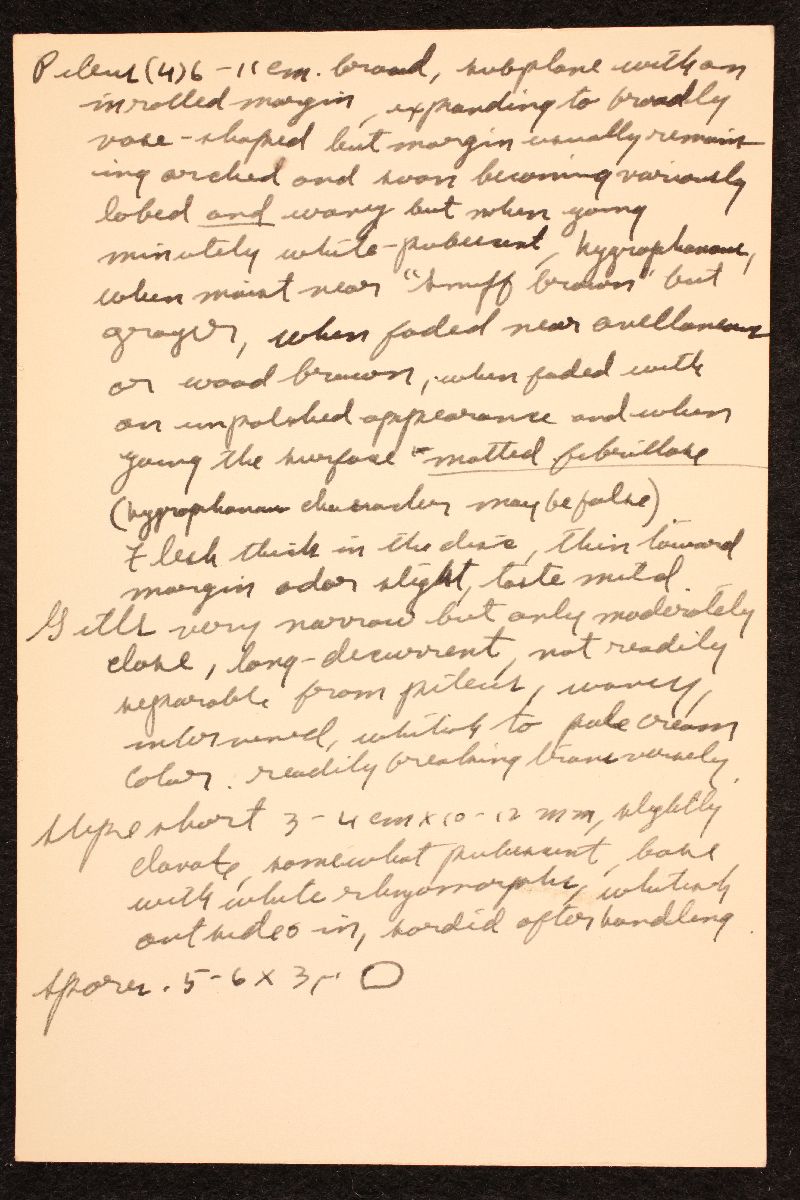 Pileus (4) 6-11 cm. broad, subplane with an
inrolled margin, expanding to broadly
vase-shaped but margin usually remain-
ing arched and soon becoming variously
lobed and wavy but when young
minutely white-pubescent, hygrophanous,
when moist near "snuff brown" but
grayer, when faded near avellaneous
or wood brown, when faded with
an unpolished appearance and when
young the surface matted fibrillose
(hygrophanous character may be false)
Flesh thick in the disc, thin toward
margin odor slight, taste mild
Gills very narrow but only moderately
close, long-decurrent, not readily
separable from pileus, wavy,
intervened, whitish to pale cream
color. readily breaking transversely.
Stipe short 3-4 cm x 10-12 mm, slightly
clavate, somewhat pubescent, base
with white rhizomorphs, whitish
outside & in, sordid after handling.
Spores. 5-6 x 3µ.